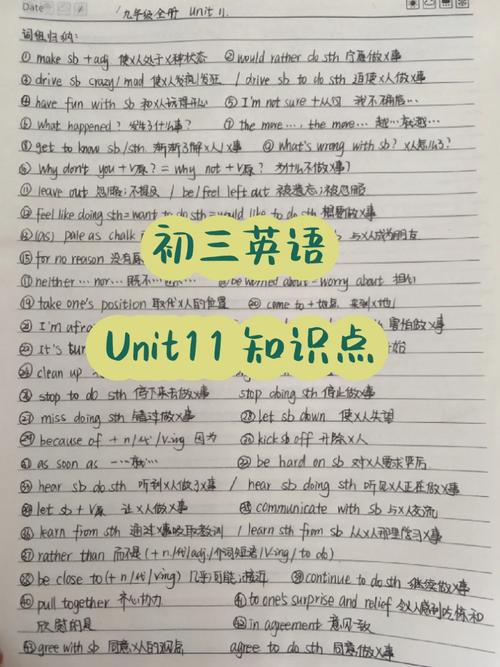 Date
九年级全册 Unit 11.
词组归纳:
① make sb + adj 使人处于X种状态 ② would rather do sth 宁愿做X事
③ drive sb crazy/ mad 使人发疯/发狂 / drive sb to do sth 迫使X人做X事
④ have fun with sb 和X人玩得开心 ⑤ I'm not sure + 从句 我不确定……
⑥ what happened? 发生了什么事? ⑦ the more…, the more… 越…就越…
⑧ get to know sb/sth 渐渐了解X人/X事 ⑨ what's wrong with sb? X人怎么了?
⑩ Why don't you + V原? = why not + V原? 为什么不做X事?
⑪ leave out 忽略;不提及 / be/feel left out 被遗忘;被忽略
⑫ feel like doing sth = want to do sth = would like to do sth 想要做X事
⑬ (as) pale as chalk 与X人成为朋友
⑮ for no reason 没有
⑰ neither… nor… 既不 be worried about = worry about 担心
⑲ take one's position 取代X人的位置 ⑳ come to + 地点 来到X地
㉑ I'm afra 害怕做X事
㉒ It's tur
㉔ clean up
stop to do sth 停下来去做X事 stop doing sth 停止做X事
㉗ miss doing sth 错过做X事 ㉘ let sb down 使X人失望
㉙ because of + n/代/V-ing 因为 kick sb off 开除X人
㉛ as soon as 一…就… ㉜ be hard on sb 对X人要求严厉
㉝ hear sb do sth 听到X人做了X事 / hear sb doing sth 听见X人正在做X事
let sb + V原 让X人做X事 communicate with sb 与X人交流
㊱ learn from sth 通过X事吸取教训 / learn sth from sb 从X人那里学习X事
㊲ rather than 而不是 (+ n/代/adj./介词短语/V-ing/ to do)
㊳ be close to (+ n/代/V-ing) 几乎;可能;接近 ㊴ continue to do sth 继续做X事
㊵ pull together 齐心协力 ㊶ to one's surprise and relief 令X人感到吃惊和
欣慰的是 ㊷ in agreement 意见一致
㊸ agree with sb 同意X人的观点 agree to do sth 同意做X事
初三英语
Unit11 知识点